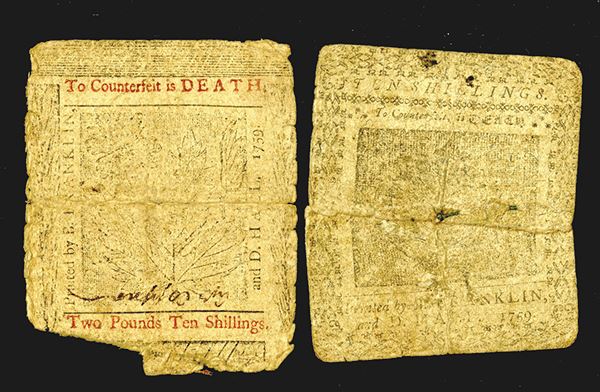 To Counterfeit is DEATH.
Printed by B. FRANKLIN,
and D. HALL, 1759
Two Pounds Ten Shillings.
TEN SHILLINGS.
To Counterfeit is DEATH
Printed by FRANKLIN,
and 1759